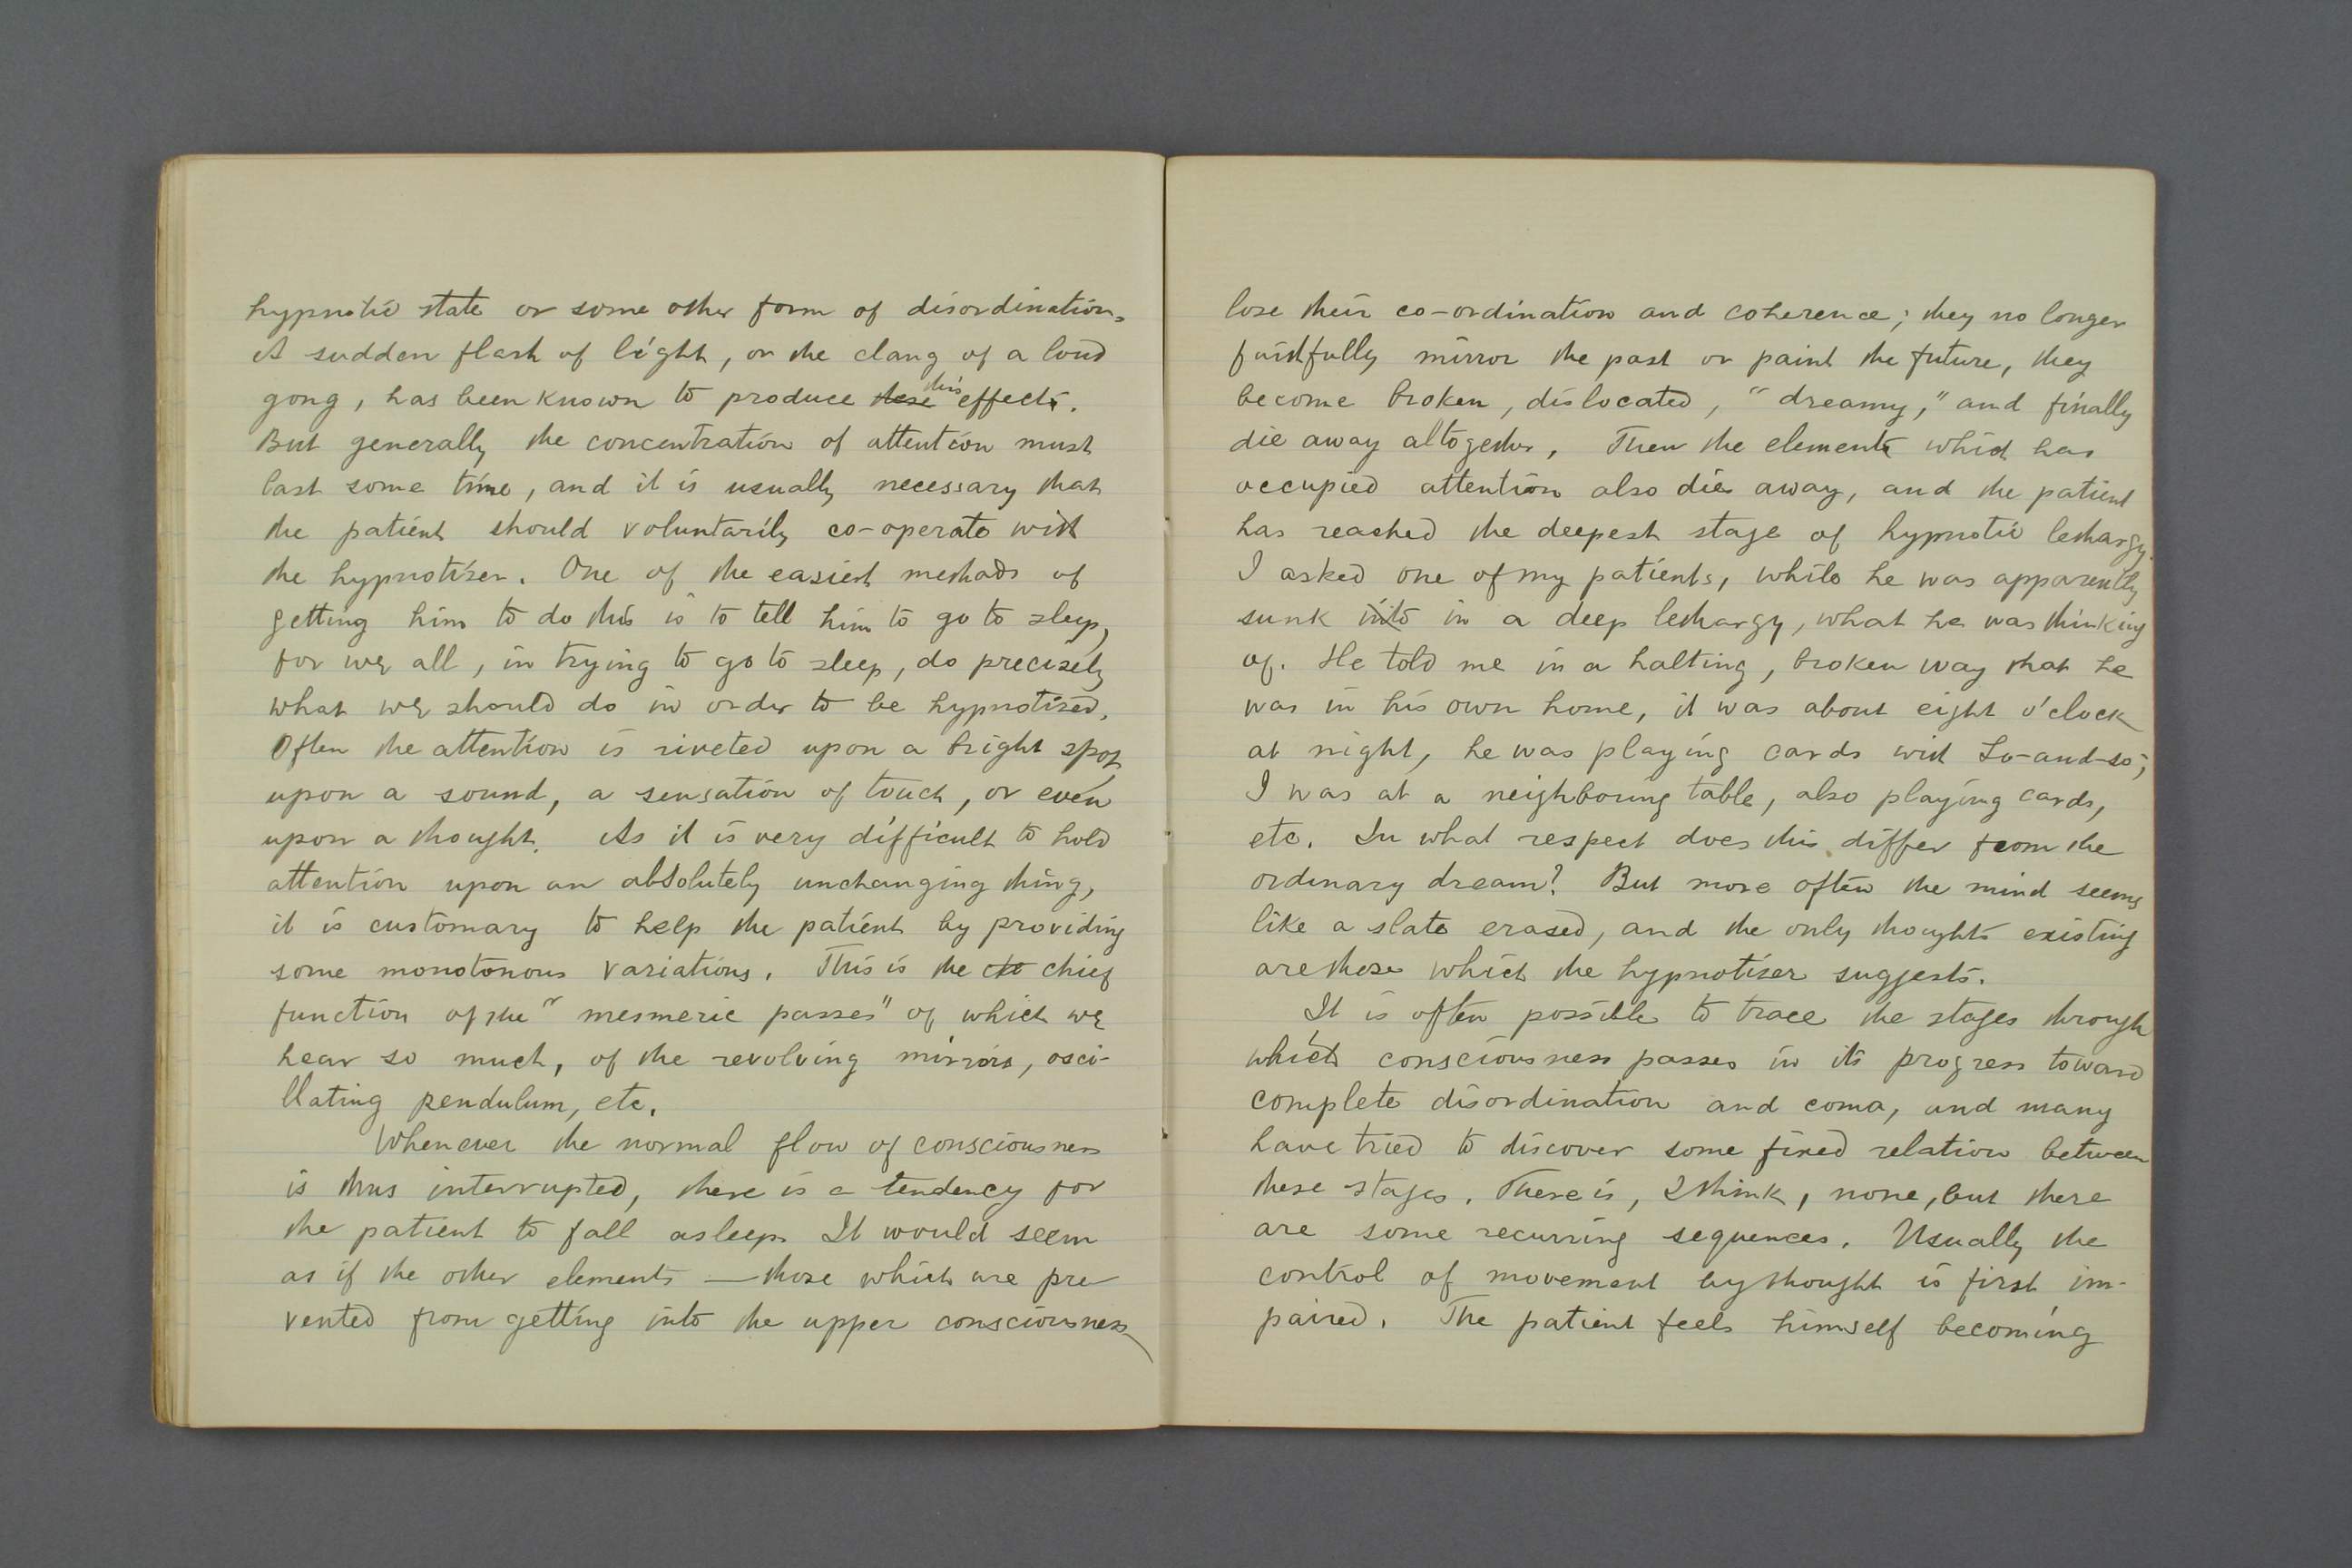 hypnotic state or some other form of disordination.
A sudden flash of light, or the clang of a loud
gong, has been known to produce these this effect.
But generally the concentration of attention must
last some time, and it is usually necessary that
the patient should voluntarily co-operate with
the hypnotiser. One of the easiest methods of
getting him to do this is to tell him to go to sleep,
for we all, in trying to go to sleep, do precisely
what we should do in order to be hypnotised.
Often the attention is riveted upon a bright spot,
upon a sound, a sensation of touch, or even
upon a thought. As it is very difficult to hold
attention upon an absolutely unchanging thing,
it is customary to help the patient by providing
some monotonous variations. This is the che chief
function of the "mesmeric passes" of which we
hear so much, of the revolving mirrors, osci-
llating pendulum, etc.
Whenever the normal flow of consciousness
is thus interrupted, there is a tendency for
the patient to fall asleep. It would seem
as if the other elements — those which are pre
vented from getting into the upper consciousness
lose their co-ordination and coherence; they no longer
faithfully mirror the past or paint the future, they
become broken, dislocated, "dreamy," and finally
die away altogether. Then the element which has
occupied attention also dies away, and the patient
has reached the deepest stage of hypnotic lethargy.
I asked one of my patients, while he was apparently
sunk into in a deep lethargy, what he was thinking
of. He told me in a halting, broken way that he
was in his own home, it was about eight o'clock
at night, he was playing cards with So-and-so;
I was at a neighbouring table, also playing cards,
etc. In what respect does this differ from the
ordinary dream? But more often the mind seems
like a slate erased, and the only thoughts existing
are those which the hypnotiser suggests.
It is often possible to trace the stages through
which consciousness passes in its progress toward
complete disordination and coma, and many
have tried to discover some fixed relation between
these stages. There is, I think, none, but there
are some recurring sequences. Usually the
control of movement by thought is first im-
paired. The patient feels himself becoming